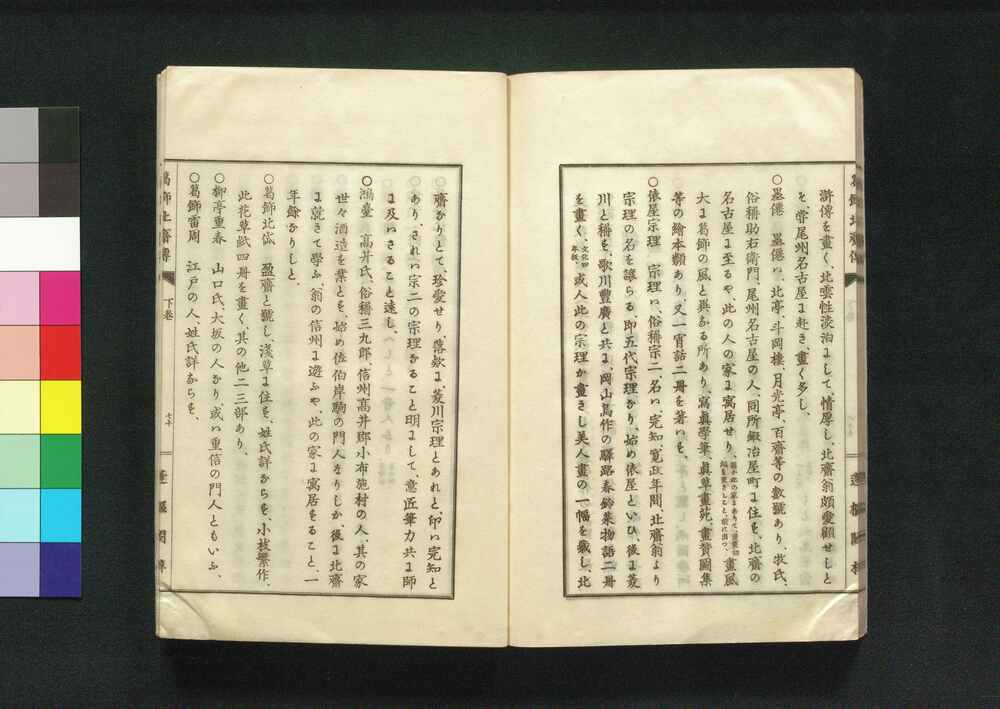 滸傳を畫く、北雲性淡泊にして、情厚し、北齋翁頗愛顧せしと
て、常尾州名古屋に赴き、畫く多し、
〇墨僊　墨僊は、北亭、斗岡樓、月光亭、百齋等の數號あり、牧氏、
俗稱助右衛門、尾州名古屋の人、同所鍛冶屋町に住す、北齋の
名古屋に至るや、此の人の家に寓居せり、
畫風
大に葛飾の風と異なる所あり、寫眞學筆、眞草畫苑、畫賛圖集
等の繪本類あり、又一宵話二册を著はす、
〇俵屋宗理　宗理は、俗稱宗二、名は、完知、寛政年間、北齋翁より
宗理の名を讓らる、即五代宗理なり、始め俵屋といひ、後に菱
川と稱す、歌川豐廣と共に、岡山鳥作の驛路春鈴菜物語二册
を畫く、文化四年板、或人此の宗理が畫きし美人畫の一幅を藏し、北
齋なりとて、珍愛せり、落欵に、菱川宗理とあれど、印は完知と
あり、されば宗二の宗理なること明にして、意匠筆力共に師
に及ばざること遠し、
〇鴻臺　高井氏、俗稱三九郎、信州高井郡小布施村の人、其の家
世々酒造を業とす、始め佐伯岸駒の門人なりしが、後に北齋
に就きて學ぶ、翁の信州に遊ぶや、此の家に寓居すること、一
年餘なりしと、
〇葛飾北岱　盈齋と號し、淺草に住す、姓氏詳ならず、小枝繁作、
此花草紙四册を畫く、其の他二三部あり、
〇柳亭重春　山口氏、大坂の人なり、或は重信の門人ともいふ、
〇葛飾雷周　江戸の人、姓氏詳ならず、
葛飾北齋傳
下卷
七十